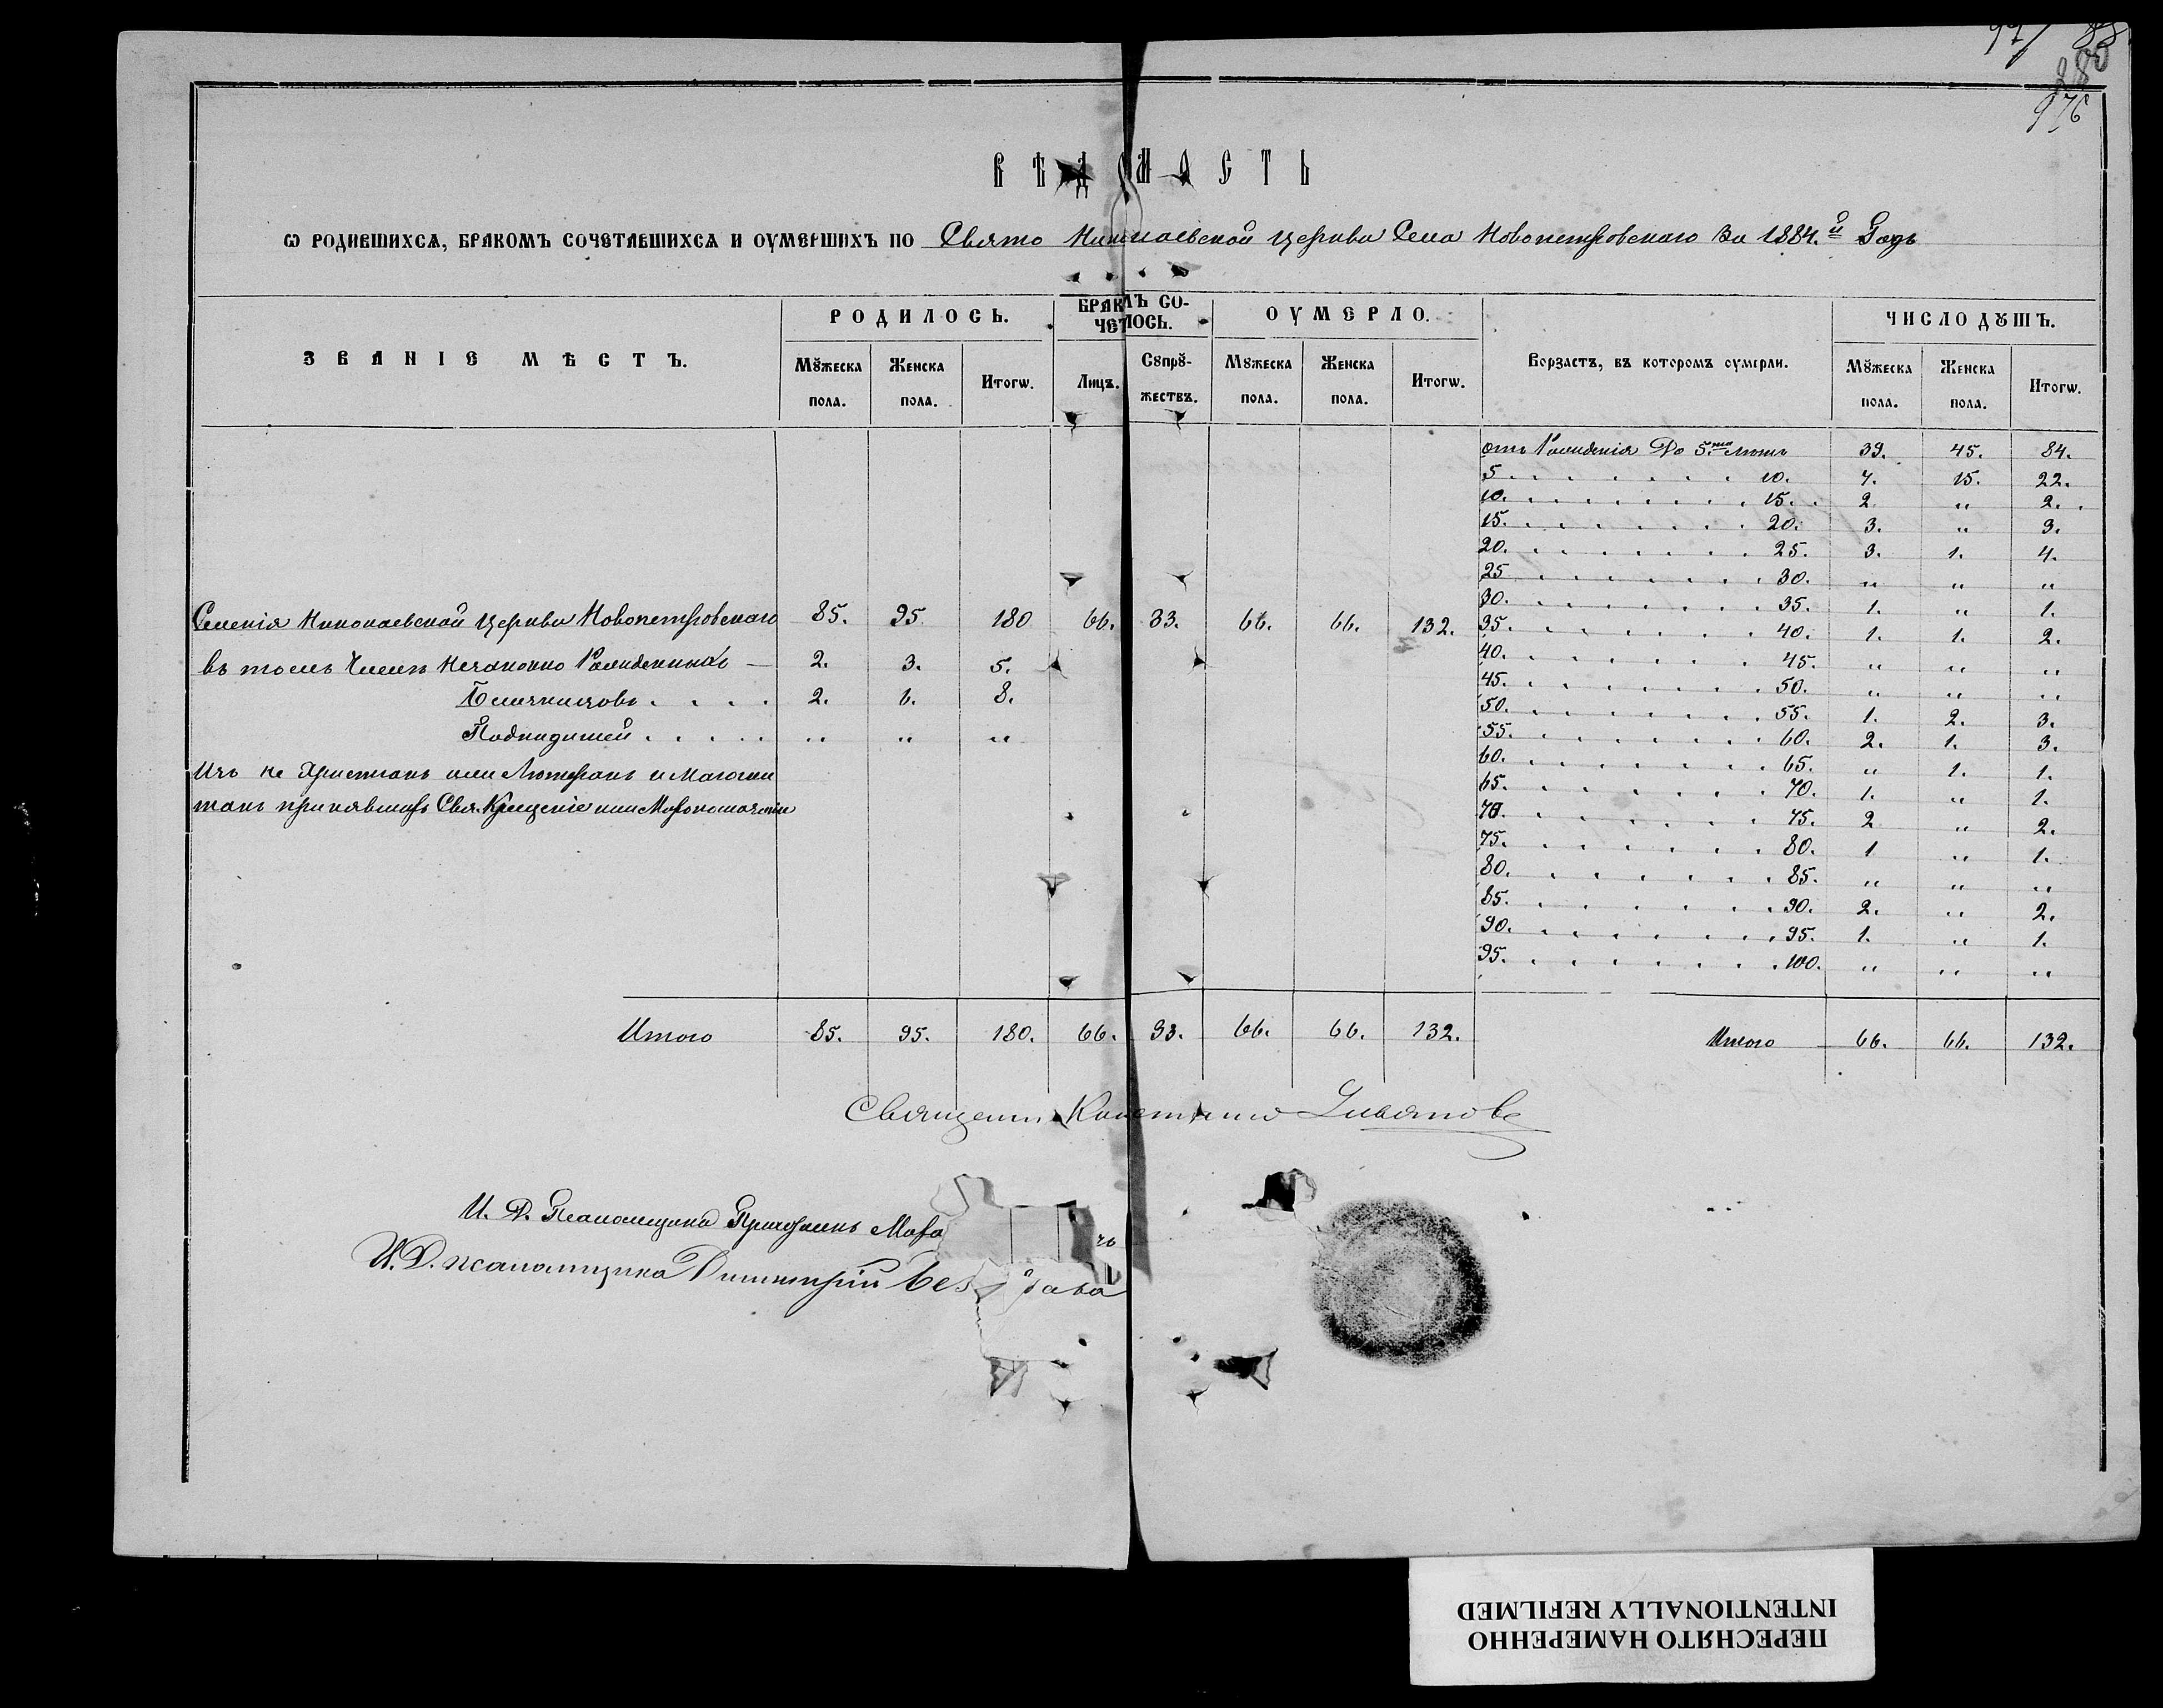 97/ 88
280
976
ВѢДОМОСТЬ
Ѡ РОДИВШИХСѦ, БРАКОМЪ СОЧЕТАВШИХСѦ И ОУМЕРШИХЪ ПО Свято Николаевской Церкви Села Новопетровскаго За 1884.й Годъ
ЗВАНІЕ МѢСТЪ.
РОДИЛОСЬ.
БРАКОМЪ СО-
ЧЕТАЛОСЬ.
ОУМЕРЛО.
Ворзастъ, въ которомъ оумерли.
ЧИСЛО ДꙊШЪ.
Мꙋжеска пола. Женска пола. Итогѡ. Лицъ. Сꙋпрꙋ-жествъ. Мꙋжеска пола. Женска пола. Итогѡ. Мꙋжеска пола. Женска пола. Итогѡ.
отъ Рожденія До 5.ти лѣтъ 39. 45. 84.
5 . . . . . . 10. 7. 15. 22.
10. . . . . . . 15. 2. " 2.
15. . . . . . . 20. 3. " 3.
20. . . . . . . 25. 3. 1. 4.
25 . . . . . . 30. " " "
30. . . . . . . 35. 1. " 1.
35. . . . . . . 40. 1. 1. 2.
40. . . . . . . 45. " " "
45. . . . . . . 50. " " "
50. . . . . . . 55. 1. 2. 3.
55. . . . . . . 60. 2. 1. 3.
60. . . . . . . 65. " 1. 1.
65. . . . . . . 70. 1. " 1.
70. . . . . . . 75. 2 " 2.
75. . . . . . . 80. 1 " 1.
80. . . . . . . 85. " " "
85. . . . . . . 90. 2. " 2.
90. . . . . . . 95. 1. " 1.
95. . . . . . . 100. " " "
Селенія Николаевской Церкви Новопетровскаго 85. 95 180 66. 33. 66. 66. 132.
въ томъ Числѣ Незаконно Рожденныхъ — 2. 3. 5.
Близнецовъ . . . . 2. 6. 8.
Подкидышей . . . . . " " "
Изъ не Христіанъ или Лютеранъ и Магоме
танъ принявшихъ Свя. Крещеніе или Мѵропомазаніе
Итого 85. 95. 180. 66. 33. 66. 66. 132.
Итого 66. 66. 132.
Священ. Константинъ
И. Д. Псаломщика
И. Д. псаломщика Димитрій
ПЕРЕСНЯТО НАМЕРЕННО
INTENTIONALLY REFILMED